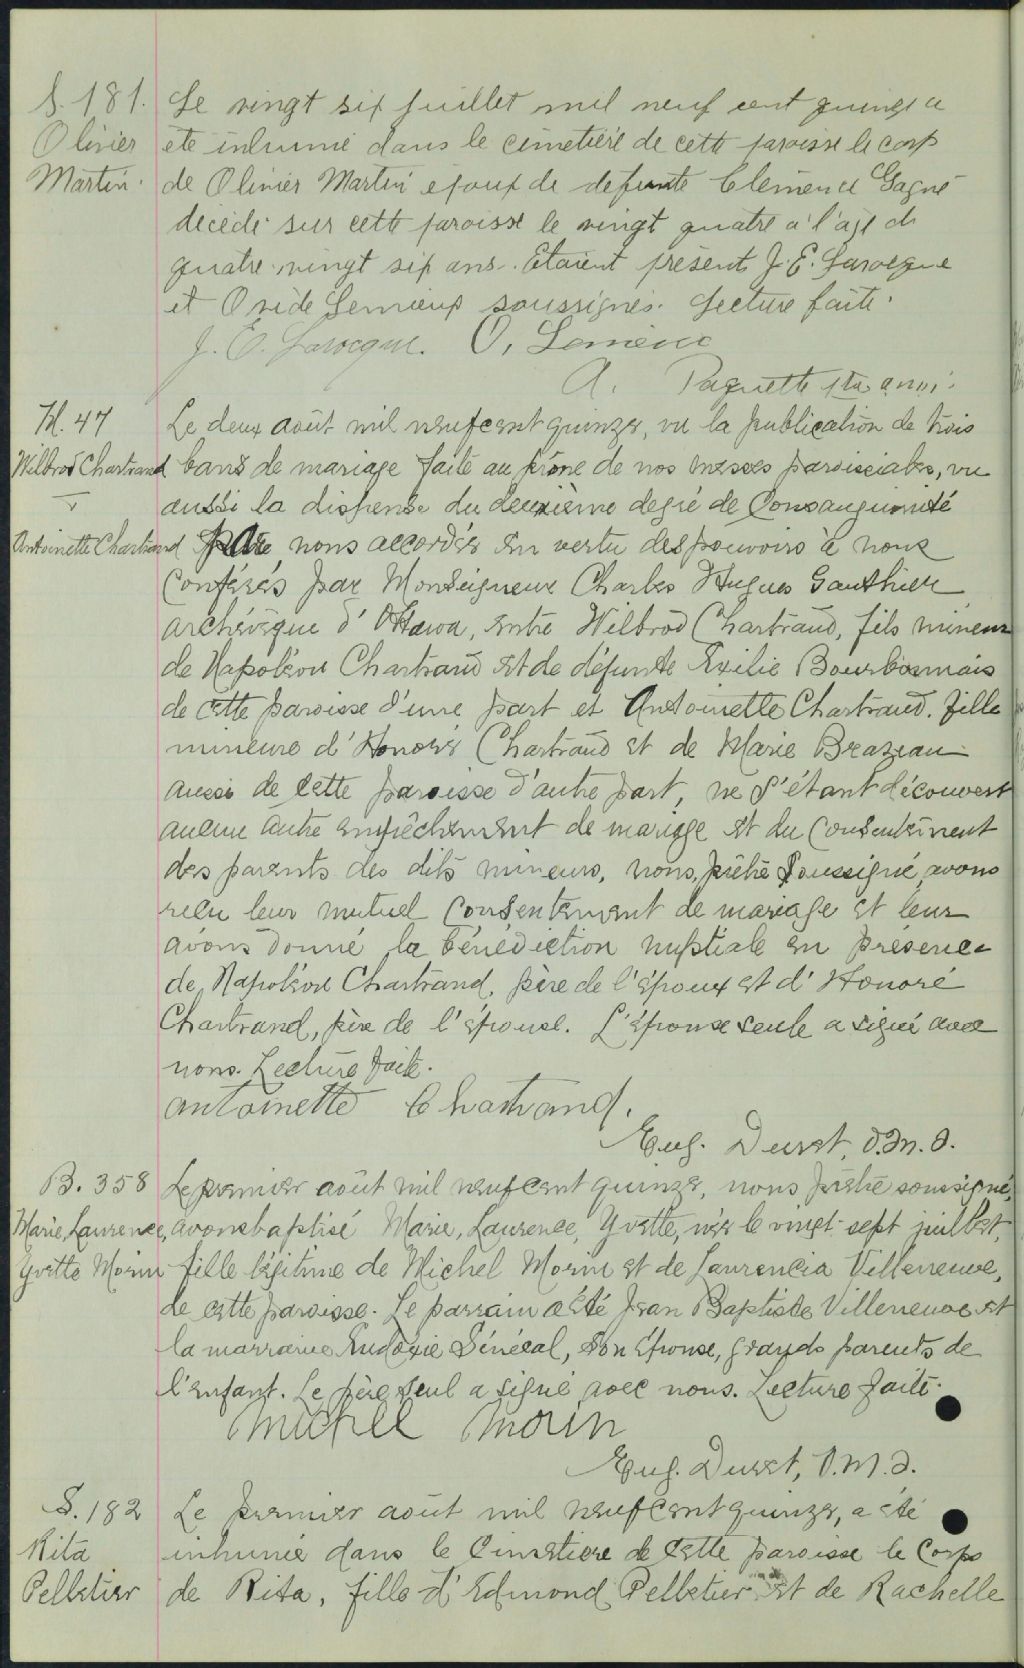 S. 181.
Olivier
Martin.
Le vingt six juillet mil neuf cent quinze a
été inhumé dans le cimetière de cette paroisse le corps
de Olivier Martin époux de defunte Clemence Gagné
décédé sur cette paroisse le vingt quatre à l'age de
quatre-vingt six ans. Etaient présents J. E. Larocque
et Ovide Lemieux soussignés. Lecture faite.
J. E. Larocque. O. Lemieux
A. Paquette ptre
M. 47
Wilbrod Chartrand
+
Antoinette Chartrand
Le deux août mil neuf cent quinze, vu la publication de trois
bans de mariage faite au prône de nos messes paroissiales, vu
aussi la dispense du deuxième degré de Consanguinité
nous accordée en vertu des pouvoirs à nous
Conférés par Monseigneur Charles Hugues Gauthier
archévêque d'Ottawa, entre Wilbrod Chartrand, fils mineur
de Napoléon Chartrand et de défunte Exilie Bourbonnais
de cette paroisse d'une part et Antoinette Chartrand. fille
mineure d'Honoré Chartrand et de Marie Brazeau
aussi de cette paroisse d'autre part, ne s'étant découvert
aucun autre empêchement de mariage et du Consentement
des parents des dits mineurs, nous, prêtre soussigné, avons
reçu leur mutuel Consentement de mariage et leur
avons donné la bénédiction nuptiale en présence
de Napoléon Chartrand, père de l'époux et d'Honoré
Chartrand, père de l'épouse. L'épouse seule a signé avec
nous. Lecture faite.
Antoinette Chartrand.
Eug. Duret, O.M.I.
B. 358
Marie, Laurence,
Yvette Morin
Le premier août mil neuf cent quinze, nous prêtre soussigné,
avons baptisé Marie, Laurence, Yvette, née le vingt-sept juillet,
fille légitime de Michel Morin et de Laurencia Villeneuve,
de cette paroisse. Le parrain a été Jean Baptiste Villeneuve et
la marraine Eudoxie Sénécal, son épouse, grands parents de
l'enfant. Le père seul a signé avec nous. Lecture faite.
Michel Morin
Eug. Duret, O.M.I.
S. 182
Rita
Pelletier
Le premier août mil neuf cent quinze, a été
inhumé dans le Cimetière de cette paroisse le corps
de Rita, fille d'Edmond Pelletier et de Rachelle